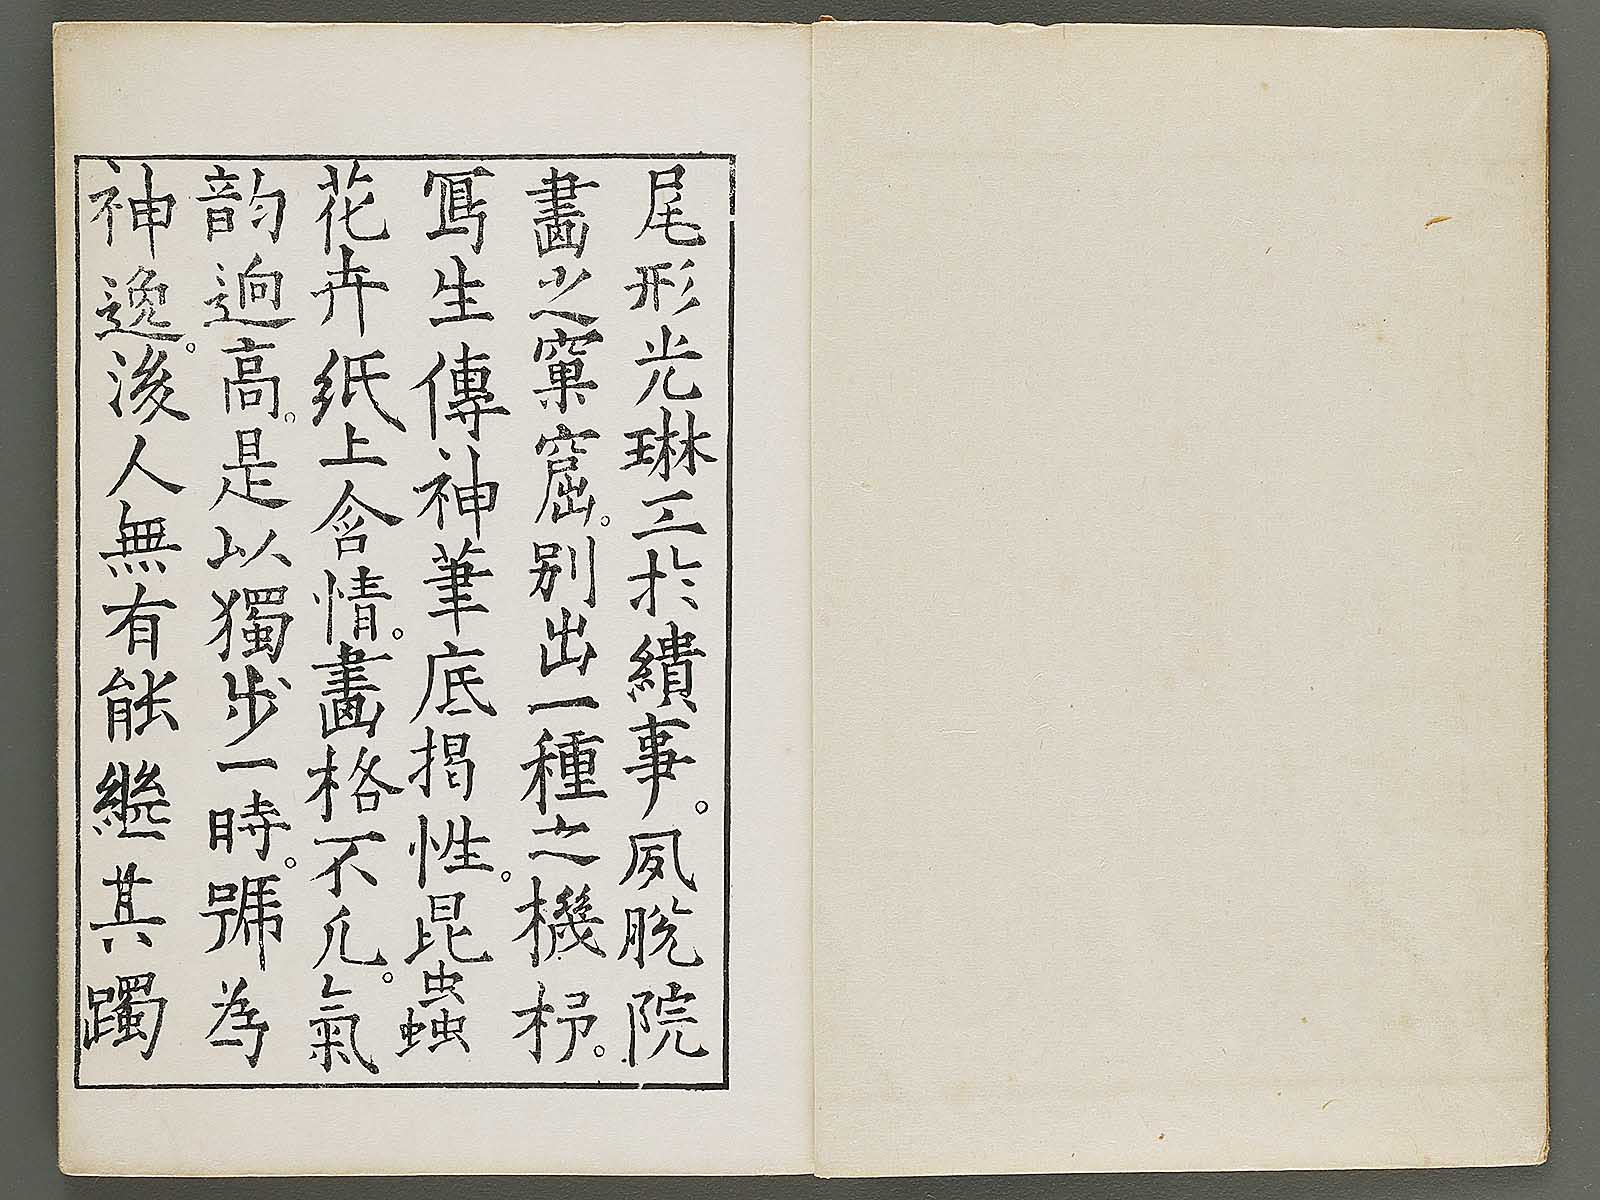 尾形光琳工於繢事。夙脫院
畵之窠窟。別出一種之機杼。
寫生傳神筆底揭性。昆蟲
花卉紙上含情。畵格不凡。氣
韵逈高。是以獨步一時。號為
神逸。後人無有能繼其躅